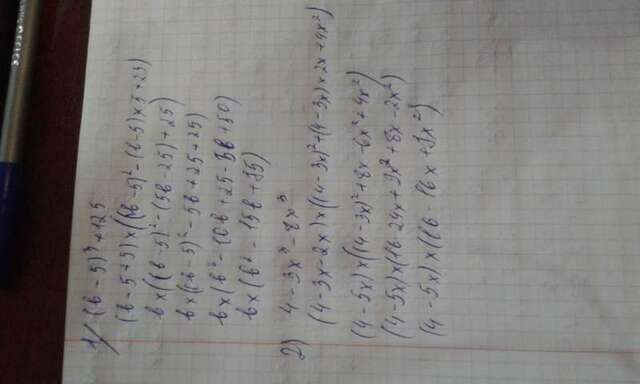 1) (b-5)³+125
(b-5+5)×((b-5)²-(b-5)×5+25)
b×((b-5)²-(5b-25)+25)
b×((b-5)²-5b+25+25)
b×(b²-10b+25-5b+50)
b×(b²-15b+75)
2) 4-3x³-8x³
(4-3x-2x)×((4-3x)²+(4-3x)×2x+4x²)
(4-5x)×((4-3x)²+8x-6x²+4x²)
(4-5x)×(16-24x+9x²+8x-2x²)
(4-5x)×(16-16x+7x²)